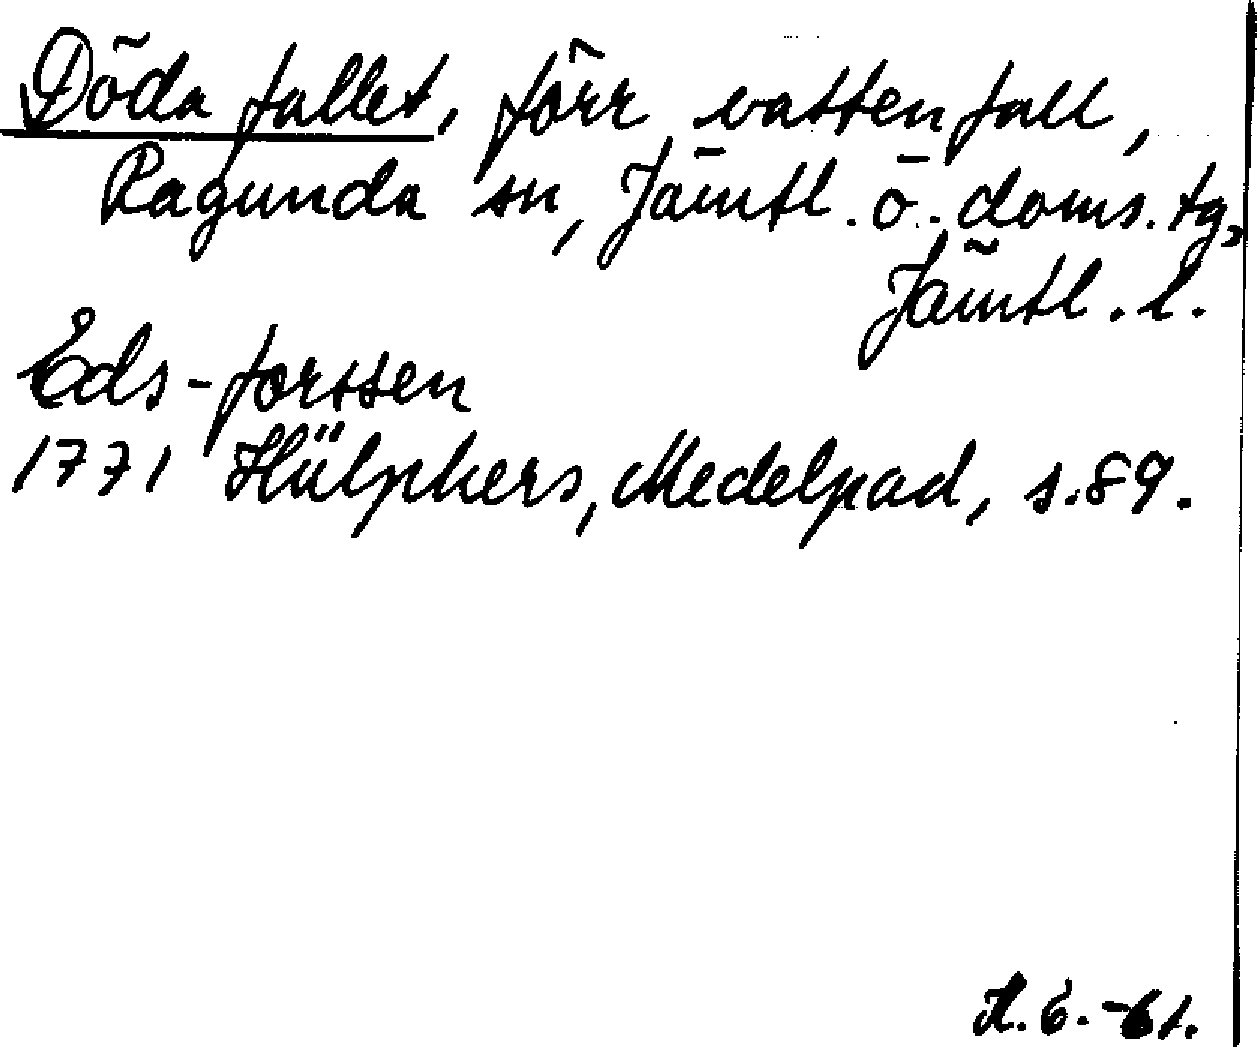 Döda fallet, förr vattenfall,
Ragunda sn, Jämtl. ö. doms. tg,
Jämtl. l.
Eds-forssen
1771 Hülphers, Medelpad, s. 89.
-61.